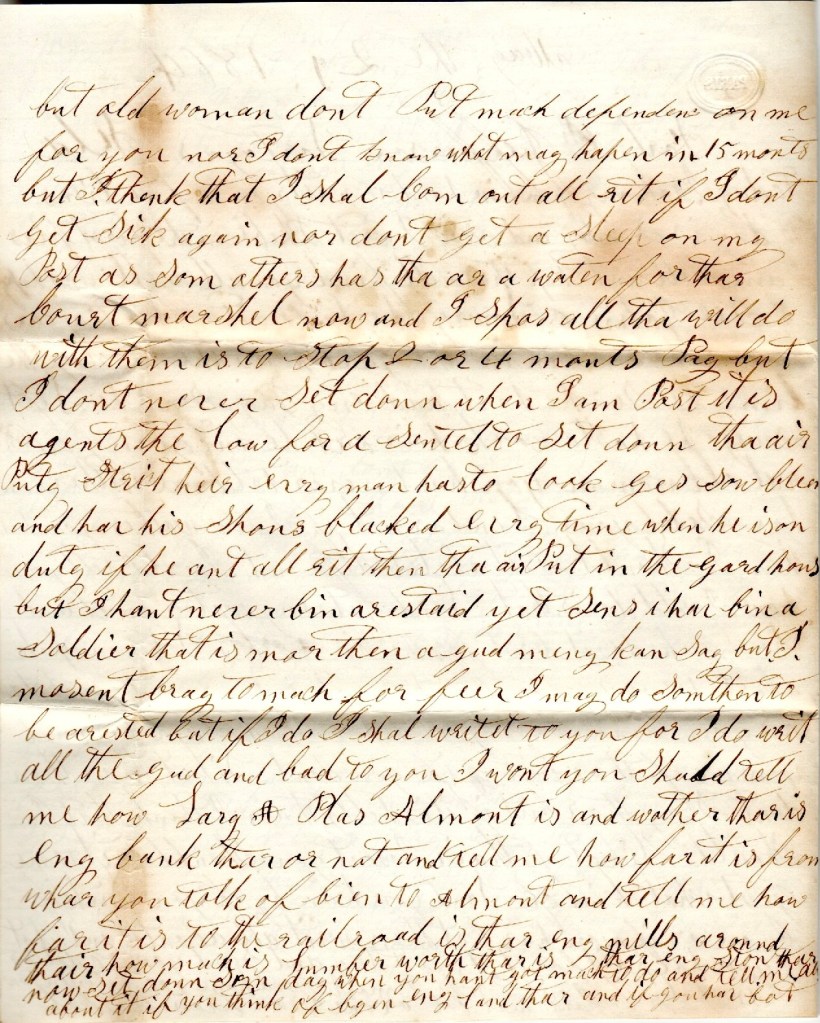 but old woman dont Put mach dependens on me
for you nor I dont know what may hapen in 15 monts
but I thenk that I shal Com out all rit if I dont
get Sick again nor dont get a Sleep on my
Post as som others has tha ar a waten for thar
Court marshel now and I Spos all tha will do
with them is to Stop 2 or 4 monts Pay but
I dont never Set donn when I am Post it is
agents the law for a Sentel to Set donn tha air
Puty Strict heir evry man has to look ges sow
and hav his Shous blacked evry time when he is on
duty if he ant all rit then tha air Put in the gard hous
but I hant never bin arestaid yet Sens i hav bin a
Soldier that is mor then a gud meny kan Say but I
mosent brag to mach for feer I may do Somthen to
be arested but if I do I Shal writet to you for I do writ
all the gud and bad to you I wont you Shuld tell
me how Larg A Plas Almont is and wother thar is
eny bank thar or not and tell me how far it is from
whar you tolk of bien to Almont and tell me how
far it is to the railroad is thar eny mills around
thair how much is Lumber worth thar is thar eny Ston thar
now sit donn Som day when you hant got mach to do and tell me all
about it if you think of byen eny land thar and if you hav bot